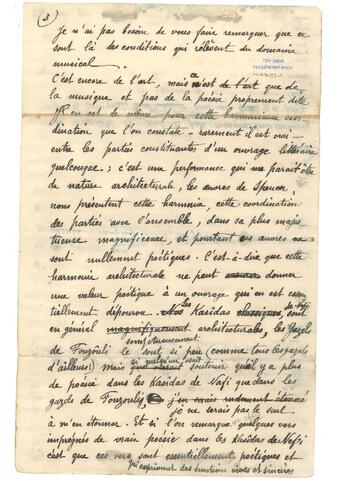 (3)
Je n'ai pas besoin de vous faire remarquer que ce
sont là des conditions qui relèvent du domaine
musical.
C'est encore de l'art, mais ce n'est de l'art que de
la musique et pas de la poésie proprement dite
Il en est de même pour cette harmonieuse coor-
dination que l'on constate – rarement il est vrai –
entre les parties constituantes d'un ouvrage littéraire
quelconque; c'est une performance qui me paraît être
de nature architecturale, les œuvres de Spencer,
nous présentent cette harmonie, cette coordination
des parties avec l'ensemble, dans sa plus majes-
tueuse magnificence, et pourtant ces œuvres ne
sont nullement poétiques. C'est-à-dire que cette
harmonie architecturale ne peut donner
une valeur poétique à un ouvrage qui en est essen-
tiellement dépourvu. les Kasîdas classiques, de Nefi sont
en général magnifiquement architecturales, les gazels
somptueusement
de Fouzoûli le sont si peu (comme tous les gazels
d'ailleurs) Mais si quelqu'un soutenir quel y a plus
de poésie dans les Kasîdas de Nefi que dans les
gazels de Fouzoûli, j'en serais rudement étonné
je ne serai pas le seul
à m'en étonner. Et si l'on remarque quelques vers
imprégnés de vraie poésie dans les Kasîdas de Nefi
c'est que ces vers sont essentiellement poétiques et
qui expriment des émotions vives et sincères